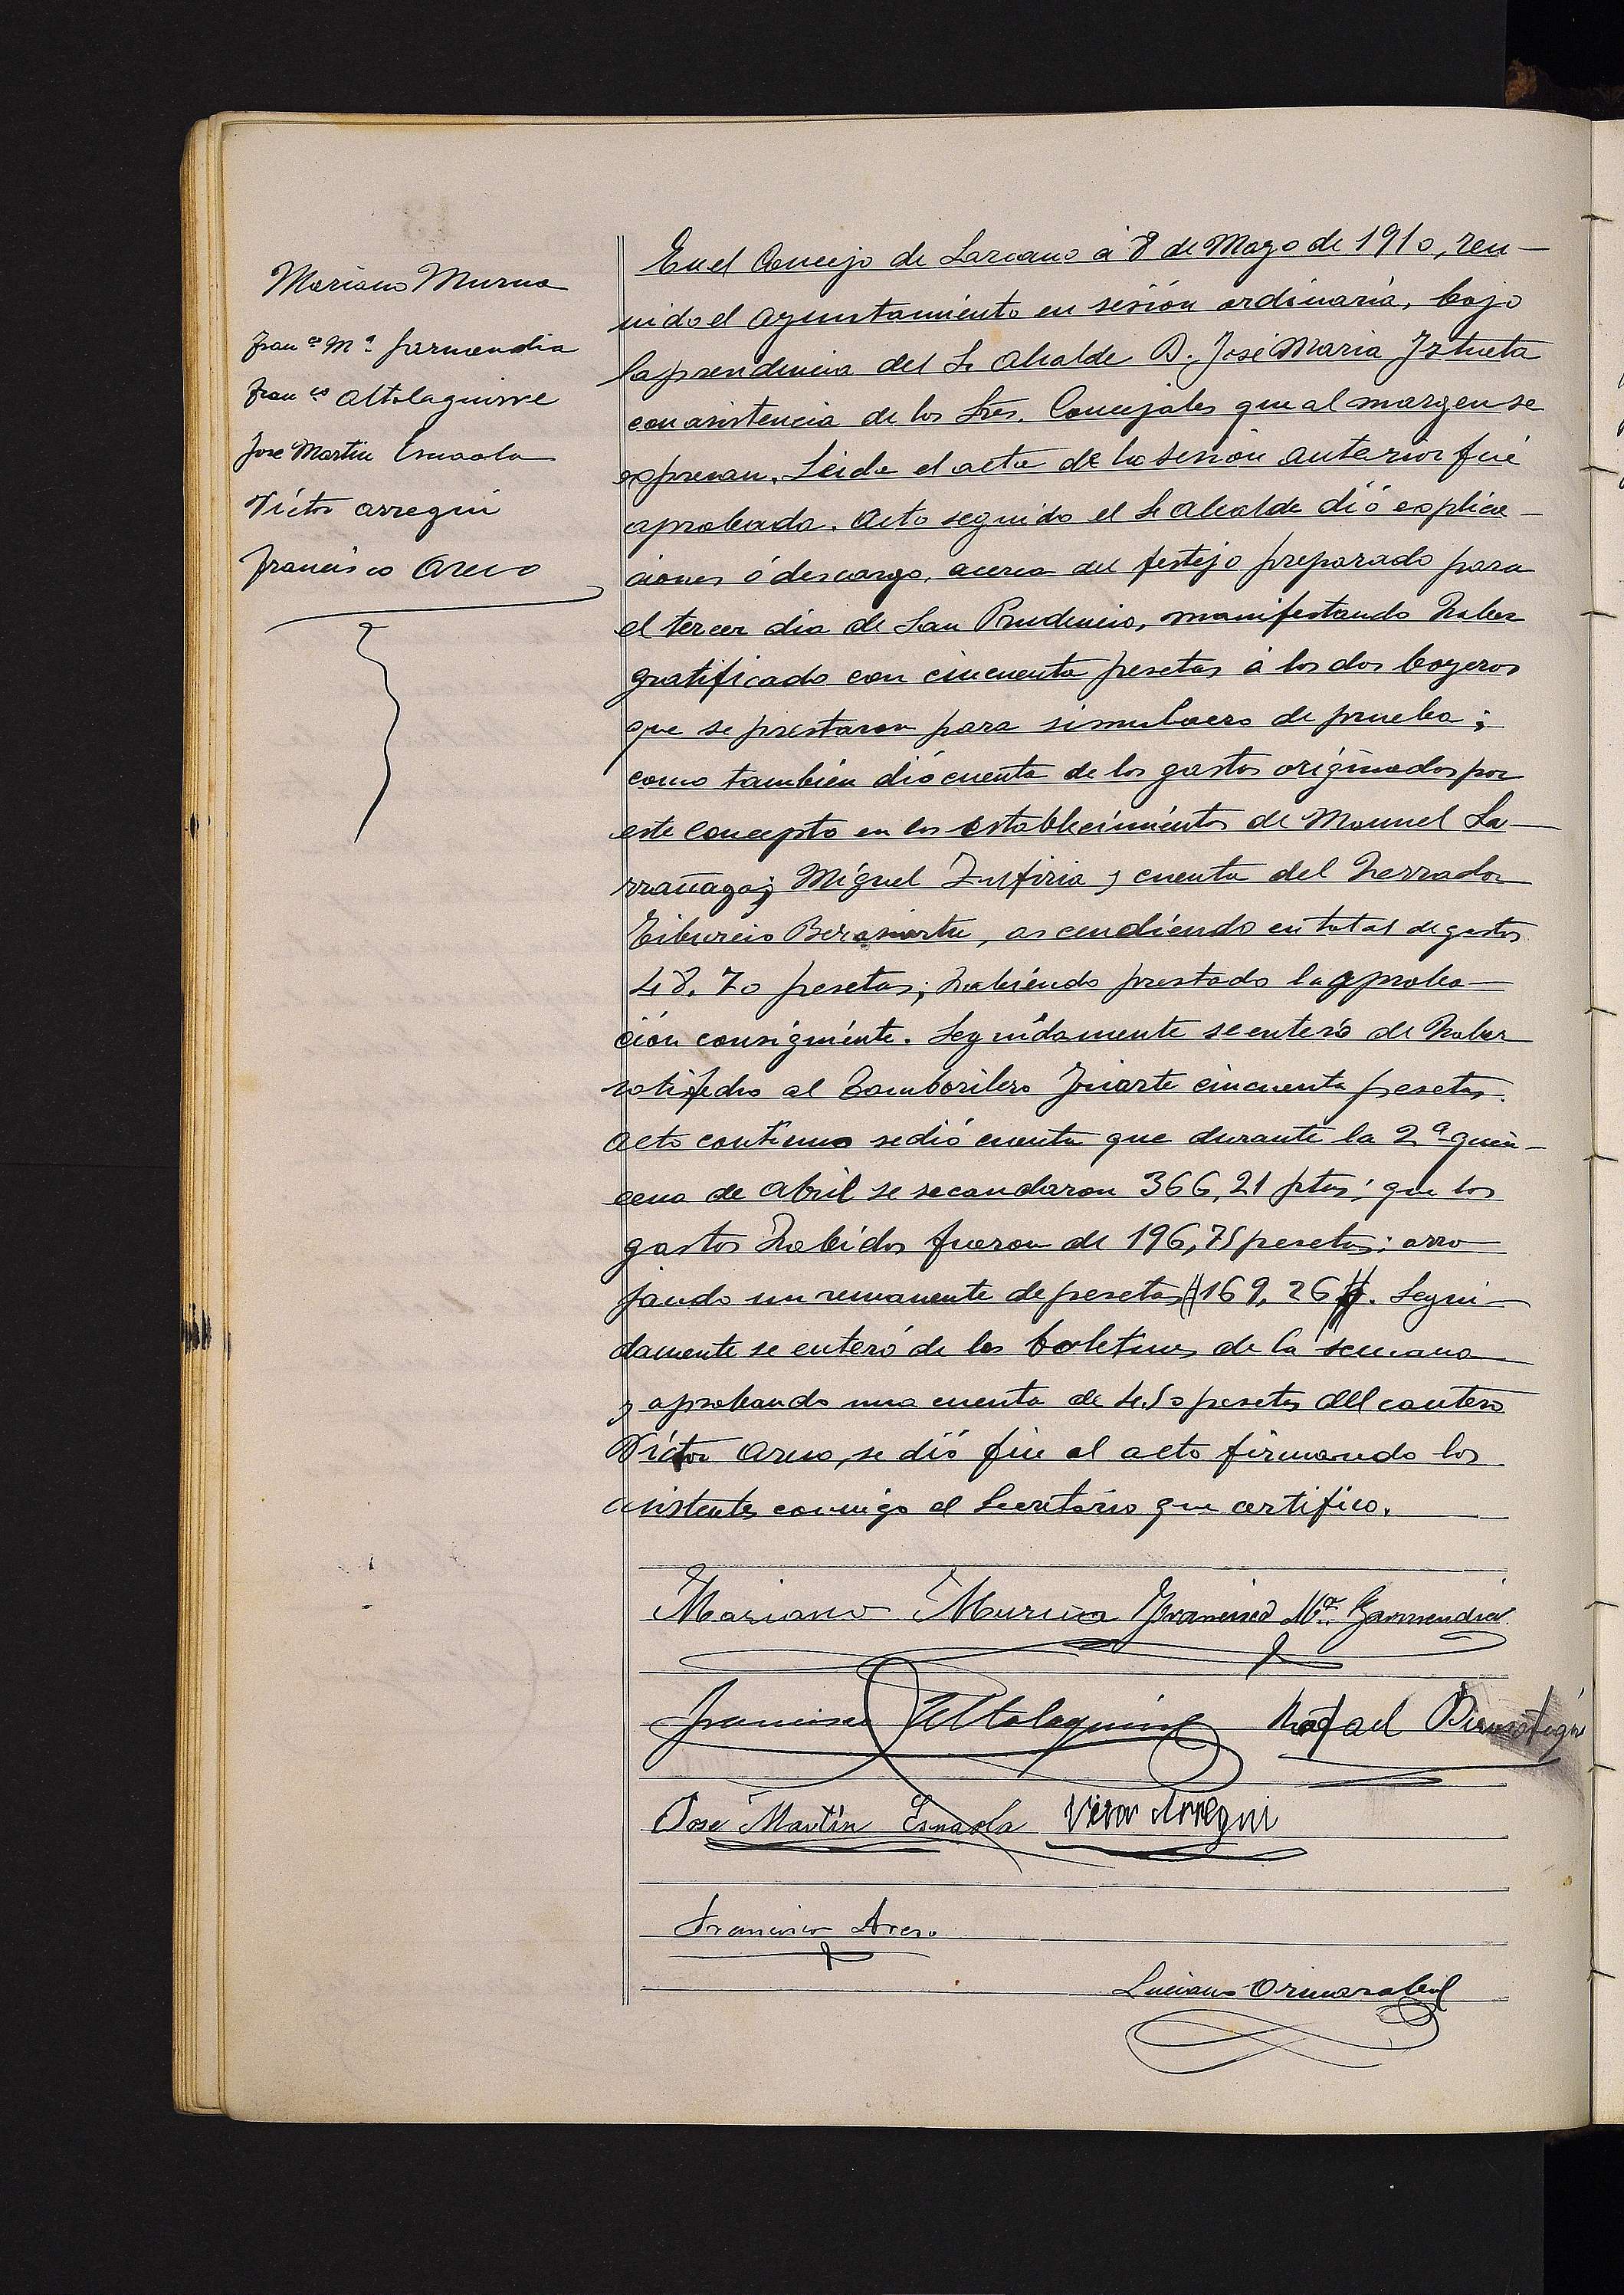 Mariano Murua
Fran.co M.a Garmendia
Fran.co Altolaguirre
Jose Martin Esnaola
Victor Arregui
Francisco Areso
En el Concejo de Lazcano á 8 de Mayo de 1910, reu-
nido el Ayuntamiento en sesión ordinaria, bajo
la presidencia del Sr Alcalde D. José Maria Iztueta
con asistencia de los Sres. Concejales que al margen se
expresan. Leida el acta de la sesion anterior fué
aprobada. Acto seguido el Sr Alcalde dió explica-
ciones ó descargo, acerca del festejo preparado para
el tercer dia de San Prudencio, manifestando haber
gratificado con cincuenta pesetas á los dos boyeros
que se prestaron para simulacro de prueba;
como también dió cuenta de los gastos originados por
este concepto en los establecimientos de Manuel La-
rrañaga; Miguel y cuenta del herrador
Tiburcio Berasiartu, ascendiendo en total de gastos
48.70 pesetas; habiendo prestado la aproba-
ción consiguiente. Seguidamente se enteró de haber
satisfecho al Tamborilero Iriarte cincuenta pesetas.
Acto continuo se dió cuenta que durante la 2.a quin-
cena de Abril se recaudaron 366,21 ptas; que los
gastos habidos fueron de 196,75 pesetas; arro
jando un remanente de pesetas 169,26. Segui-
damente se enteró de los boletines de la semana
y aprobando una cuenta de 4.50 pesetas del cantero
Víctor Areso, se dió fin al acto firmando los
asistentes conmigo el Secretario que certifico.
Mariano Murua Francisco M.a Garmendia
Francisco Altolaguirre Rafael
Jose Martín Esnaola Victor Arregui
Francisco Areso
Luciano Ormazabal